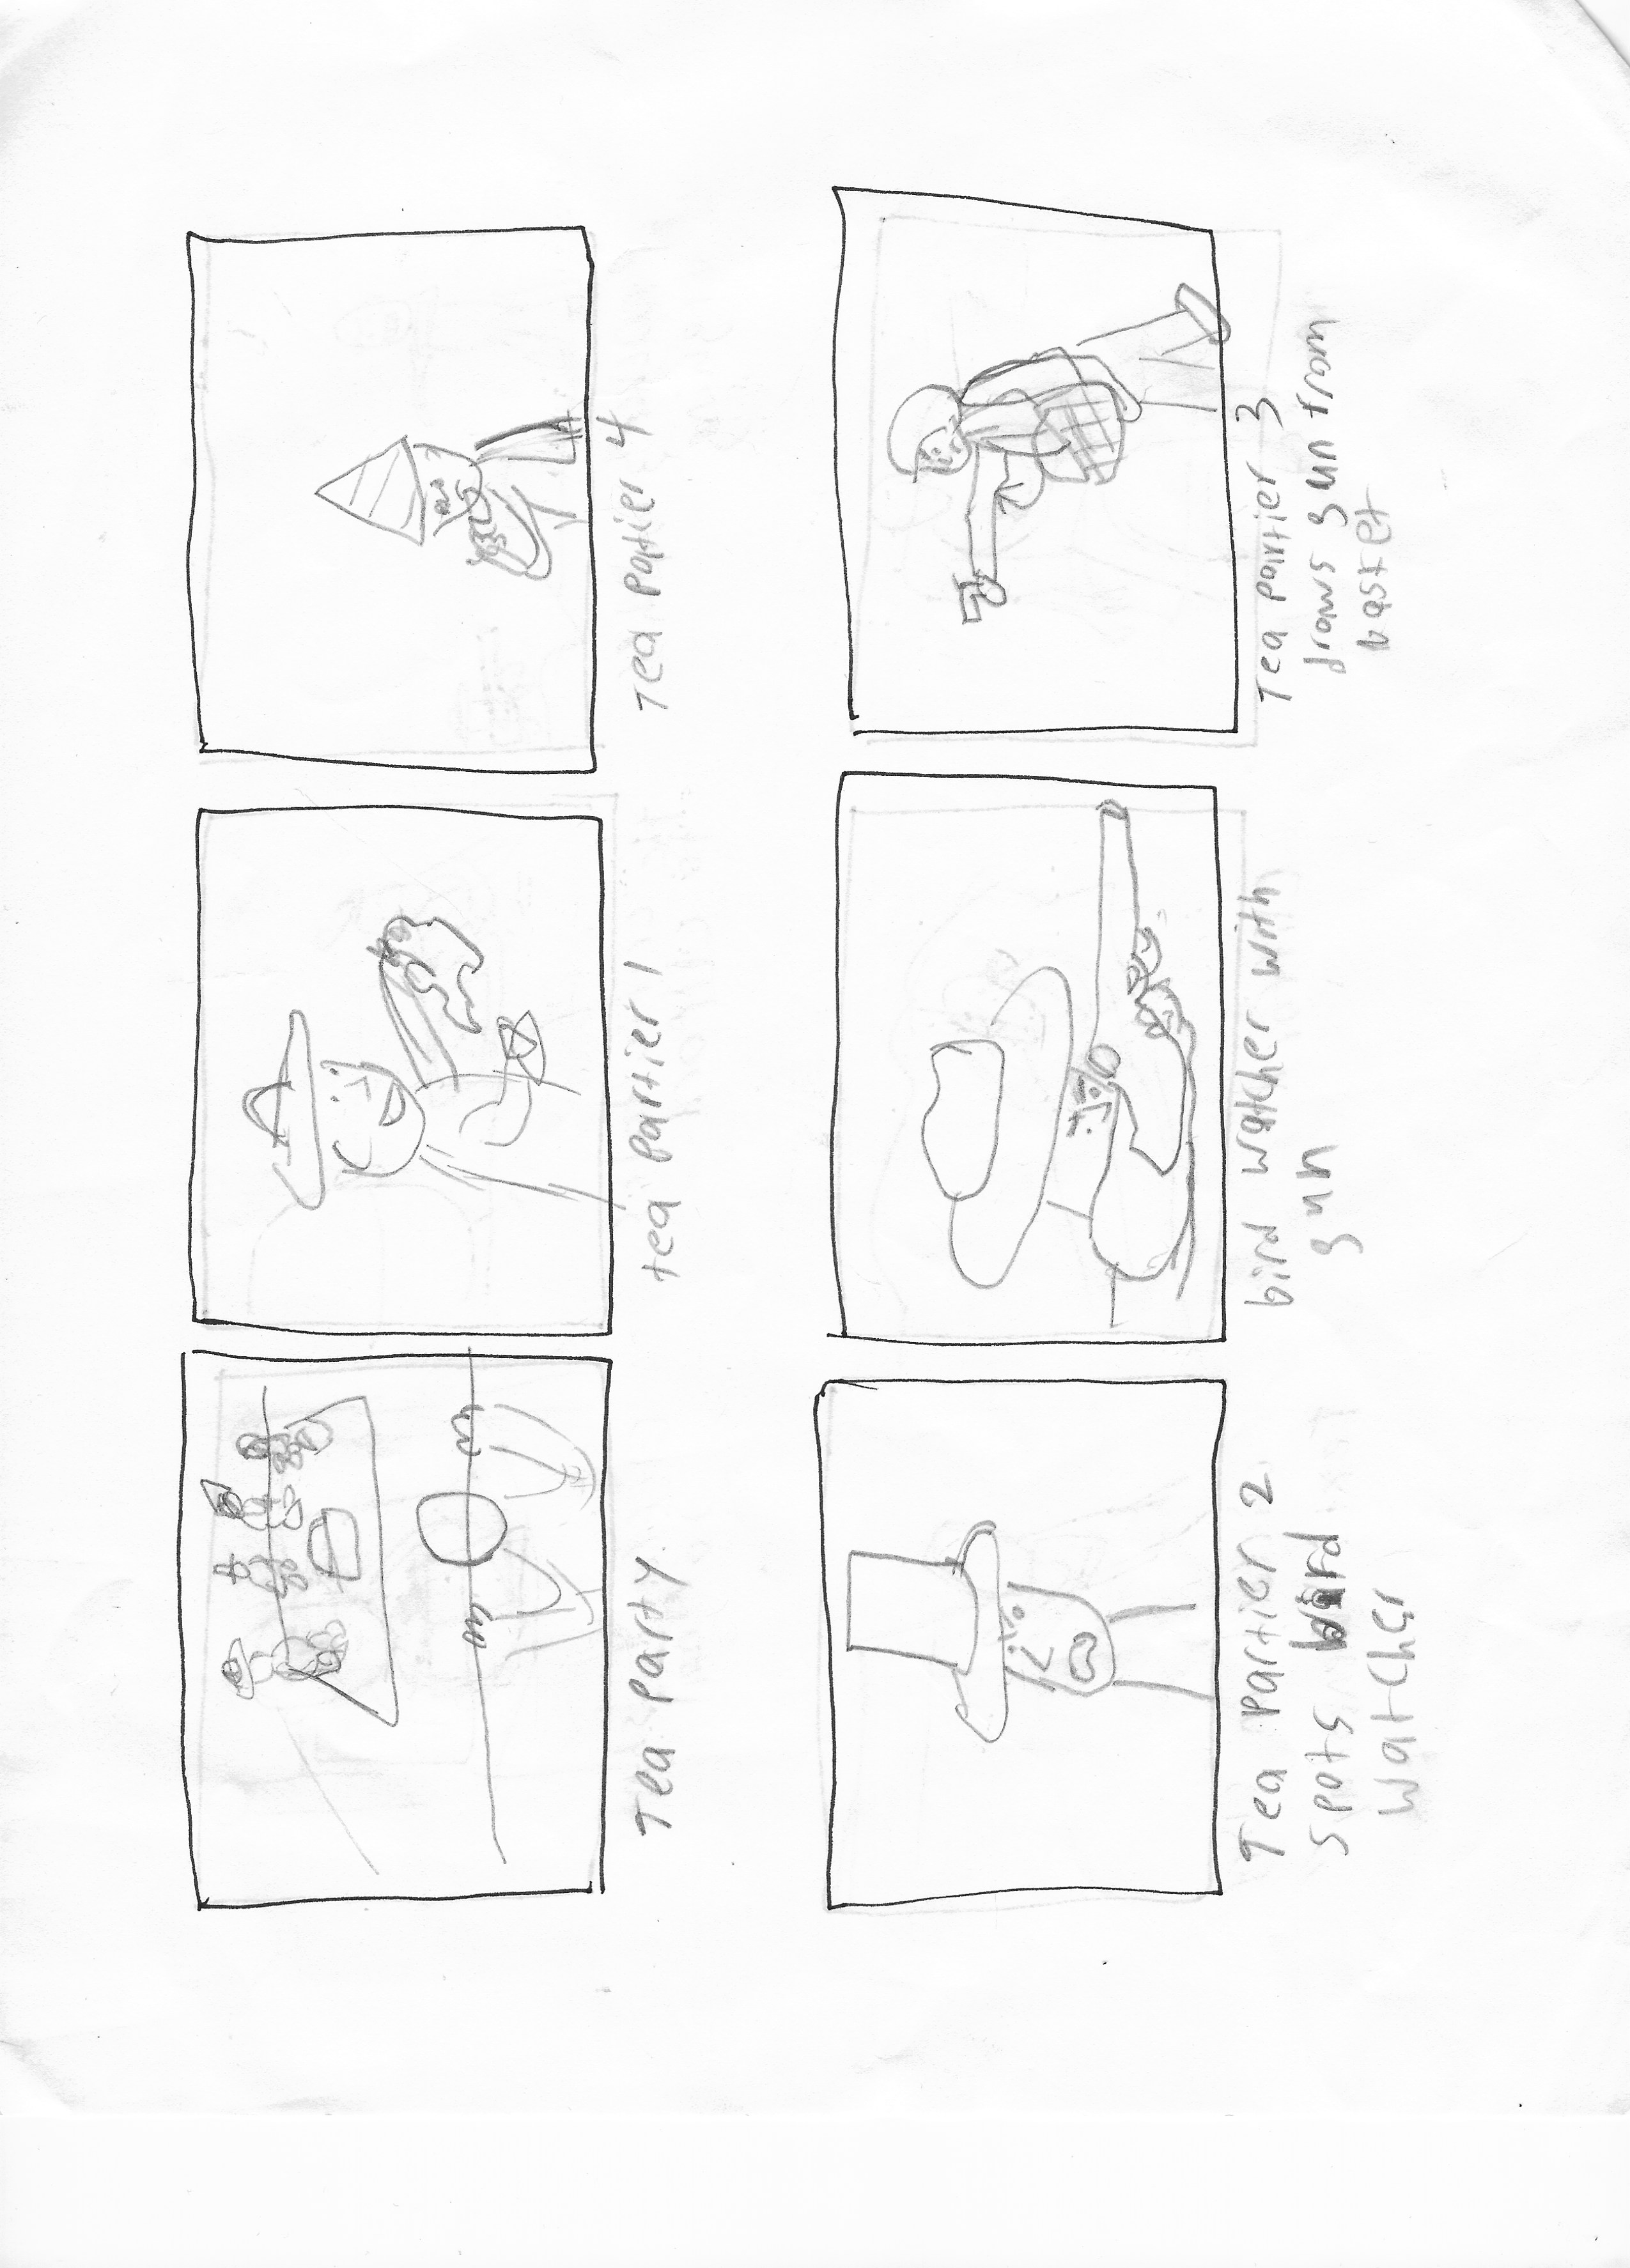 Tea Party
tea partier 1
Tea Patier 4
Tea partier 2
spots bird
watcher
bird watcher with
gun
Tea partier 3
draws gun from
basket